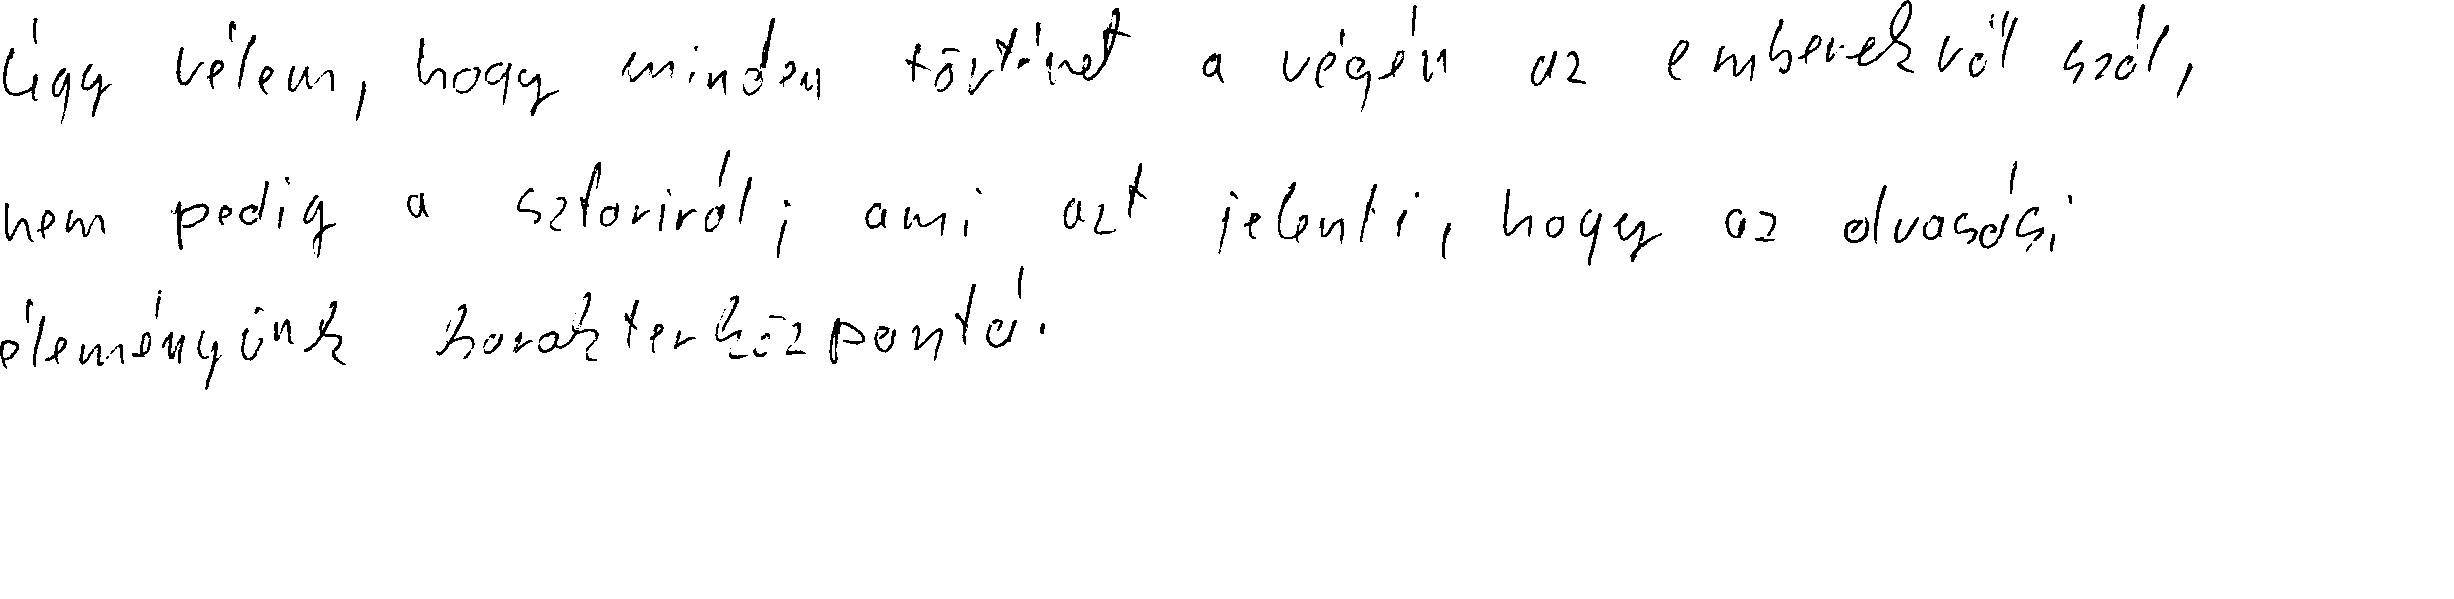 Úgy vélem, hogy minden történet a végén az emberekről szól,
nem pedig a sztoriról; ami azt jelenti, hogy az olvasási
éleményünk karakterközpontú.